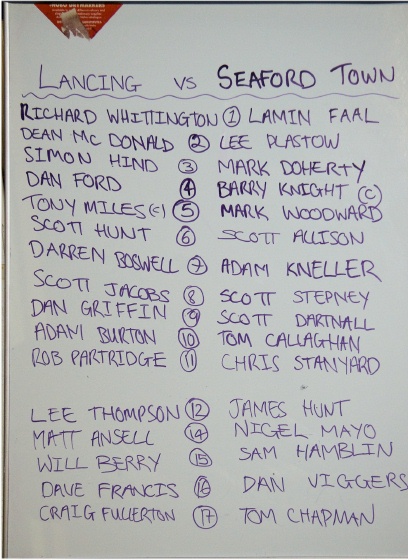 LANCING VS SEAFORD TOWN
RICHARD WHITTINGTON 1 LAMIN FAAL
DEAN MC DONALD 2 LEE PLASTOW
SIMON HIND 3 MARK DOHERTY
DAN FORD 4 BARRY KNIGHT (C)
TONY MILES (C) 5 MARK WOODWARD
SCOTT HUNT 6 SCOTT ALLISON
DARREN BOSWELL 7 ADAM KNELLER
SCOTT JACOBS 8 SCOTT STEPNEY
DAN GRIFFIN 9 SCOTT DARTNALL
ADAM BURTON 10 TOM CALLAGHAN
ROB PARTRIDGE 11 CHRIS STANYARD
LEE THOMPSON 12 JAMES HUNT
MATT ANSELL 14 NIGEL MAYO
WILL BERRY 15 SAM HAMBLIN
DAVE FRANCIS 16 DAN VIGGERS
CRAIG FULLERTON 17 TOM CHAPMAN